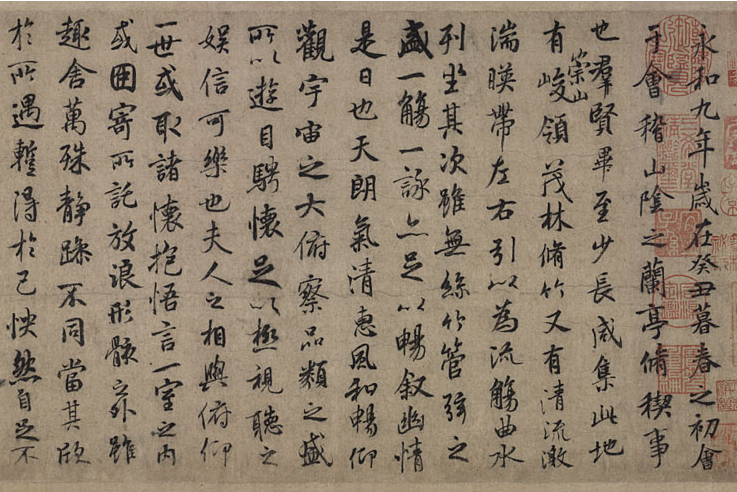 永和九年歲在癸丑暮春之初會
于會稽山陰之蘭亭脩稧事
也羣賢畢至少長咸集此地
有崇山峻領茂林脩竹又有清流激
湍暎帶左右引以為流觴曲水
列坐其次雖無絲竹管弦之
盛一觴一詠亦足以暢叙幽情
是日也天朗氣清惠風和暢仰
觀宇宙之大俯察品類之盛
所以遊目騁懷足以極視聽之
娛信可樂也夫人之相與俯仰
一世或取諸懷抱悟言一室之內
或因寄所託放浪形骸之外雖
趣舍萬殊静躁不同當其欣
於所遇暫得於己怏然自足不